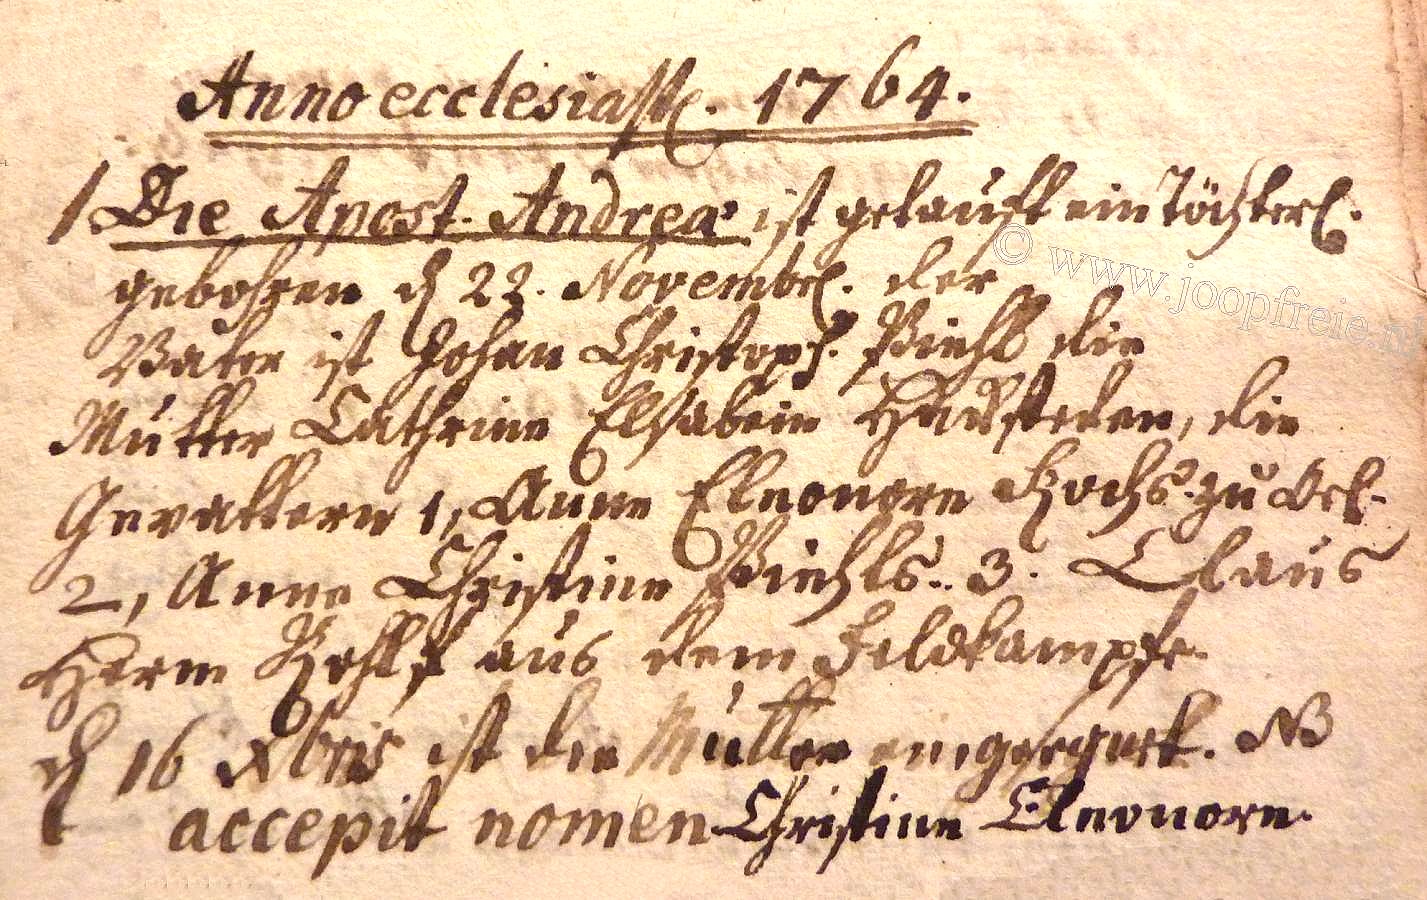 Anno ecclesiast. 1764.
1. Die Apost. Andreae ist getauft ein Töchterl.
gebohren d 22. Novembr. der
Vater ist Johan Christoph. Biehl die
Mutter Cathrine Elsabein die
Gevattern 1, Anne Eleonore Kochs. zu
2, Anne Christine Biehls. 3. Claus
Herm aus dem Feldkampfe.
d 16 Xbris ist die Mutter eingesegnet. NB
accepit nomen Christine Eleonore.
© www.joopfreie.nl